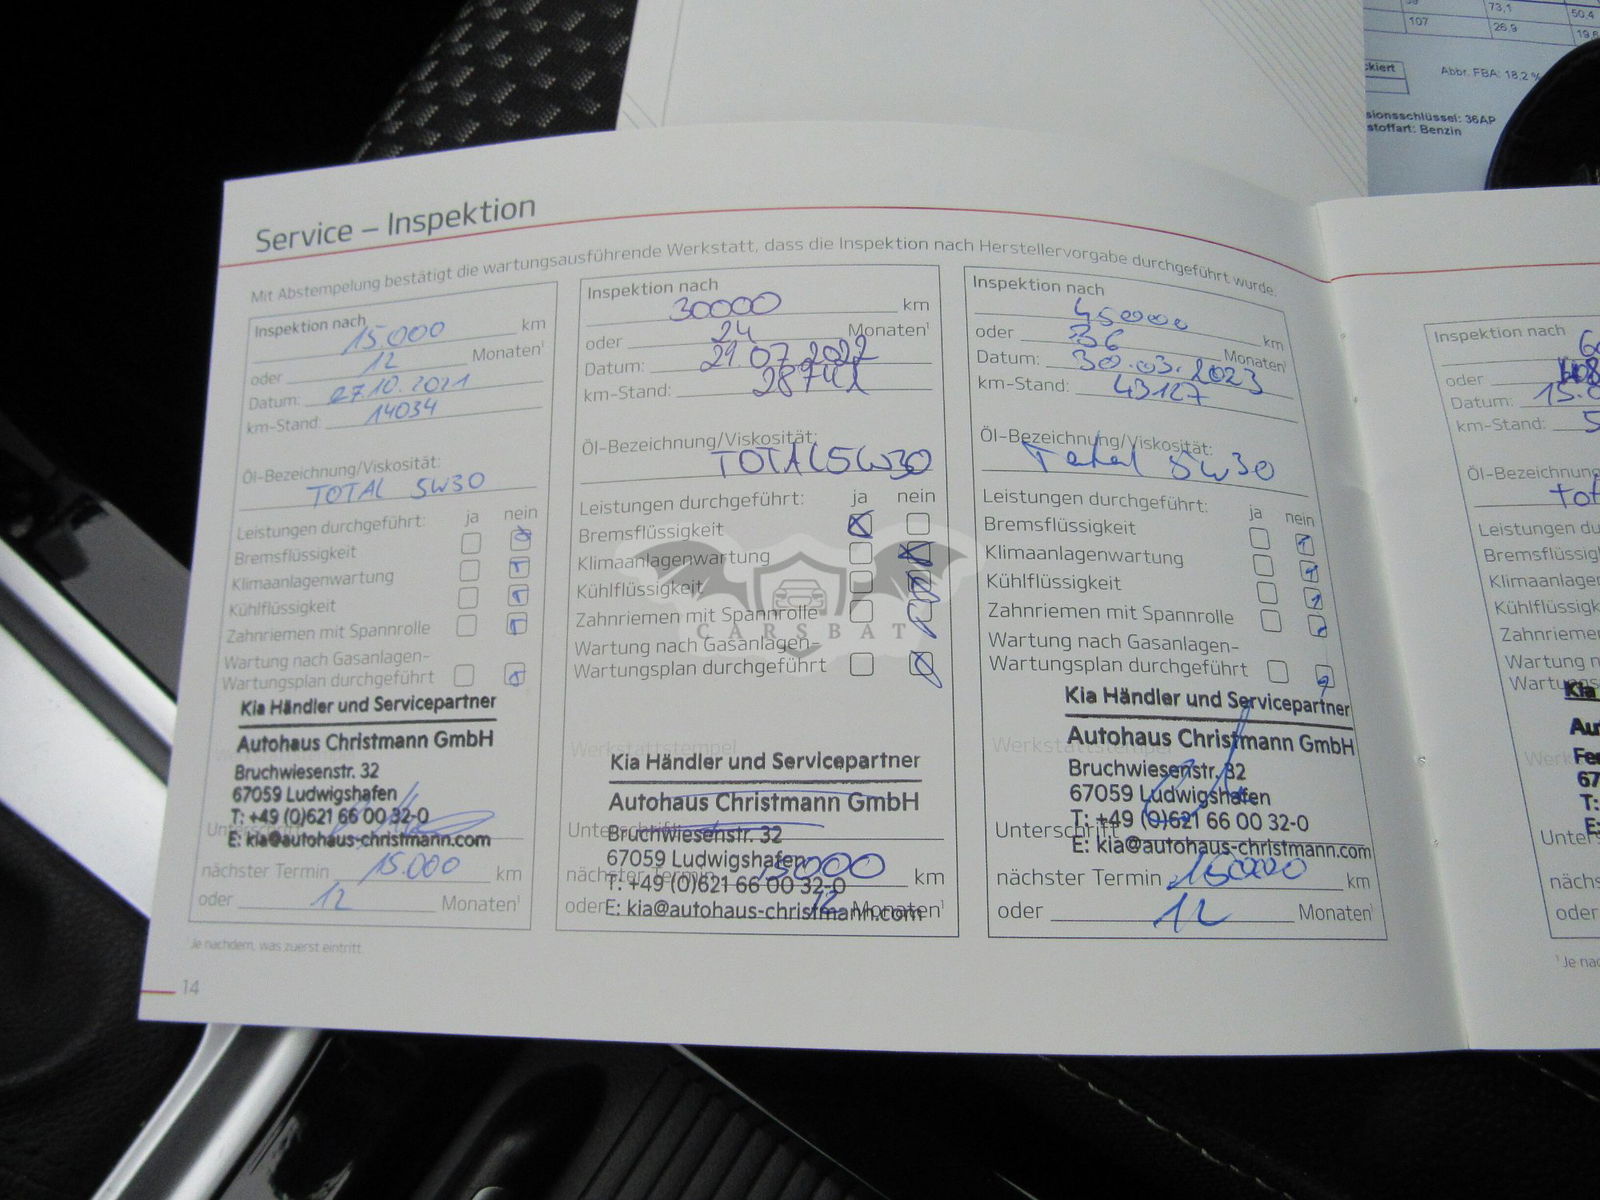 73,1 50,4
107 26,9 19,6
Abbr. FBA: 18,2 %
sionsschlüssel: 36AP
stoffart: Benzin
Service – Inspektion
Mit Abstempelung bestätigt die wartungsausführende Werkstatt, dass die Inspektion nach Herstellervorgabe durchgeführt wurde.
Inspektion nach
15.000 km
oder 12 Monaten¹
Datum: 27.10.2021
km-Stand: 14034
Öl-Bezeichnung/Viskosität:
TOTAL 5W30
Leistungen durchgeführt: ja nein
Bremsflüssigkeit
Klimaanlagenwartung
Kühlflüssigkeit
Zahnriemen mit Spannrolle
Wartung nach Gasanlagen-
Wartungsplan durchgeführt
Kia Händler und Servicepartner
Autohaus Christmann GmbH
Bruchwiesenstr. 32
67059 Ludwigshafen
T: +49 (0)621 66 00 32-0
E: kia@autohaus-christmann.com
nächster Termin 15.000 km
oder 12 Monaten¹
¹Je nachdem, was zuerst eintritt.
14
Inspektion nach
30000 km
oder 24 Monaten¹
Datum: 29.07.2022
km-Stand:
Öl-Bezeichnung/Viskosität:
TOTAL 5W30
Leistungen durchgeführt: ja nein
Bremsflüssigkeit
Klimaanlagenwartung
Kühlflüssigkeit
Zahnriemen mit Spannrolle
Wartung nach Gasanlagen-
Wartungsplan durchgeführt
CARSBAT
Werkstattstempel
Kia Händler und Servicepartner
Autohaus Christmann GmbH
Unterschrift
Bruchwiesenstr. 32
67059 Ludwigshafen
nächster Termin 15000 km
T: +49 (0)621 66 00 32-0
oder 12 Monaten¹
E: kia@autohaus-christmann.com
Inspektion nach
45000 km
oder 36 Monaten¹
Datum: 30.03.2023
km-Stand: 43127
Öl-Bezeichnung/Viskosität:
Total 5W30
Leistungen durchgeführt: ja nein
Bremsflüssigkeit
Klimaanlagenwartung
Kühlflüssigkeit
Zahnriemen mit Spannrolle
Wartung nach Gasanlagen-
Wartungsplan durchgeführt
Kia Händler und Servicepartner
Werkstattstempel
Autohaus Christmann GmbH
Bruchwiesenstr. 32
67059 Ludwigshafen
T: +49 (0)621 66 00 32-0
Unterschrift
E: kia@autohaus-christmann.com
nächster Termin 15000 km
oder 12 Monaten¹
Inspektion nach
oder
Datum: 15.0
km-Stand: 5
Öl-Bezeichnung
Tot
Leistungen du
Bremsflüssig
Klimaanlage
Kühlflüssigk
Zahnrieme
Wartung n
Wartungs
Kia
Au
Werk
Fe
67
T:
E:
Unter
nächs
oder
¹Je nac